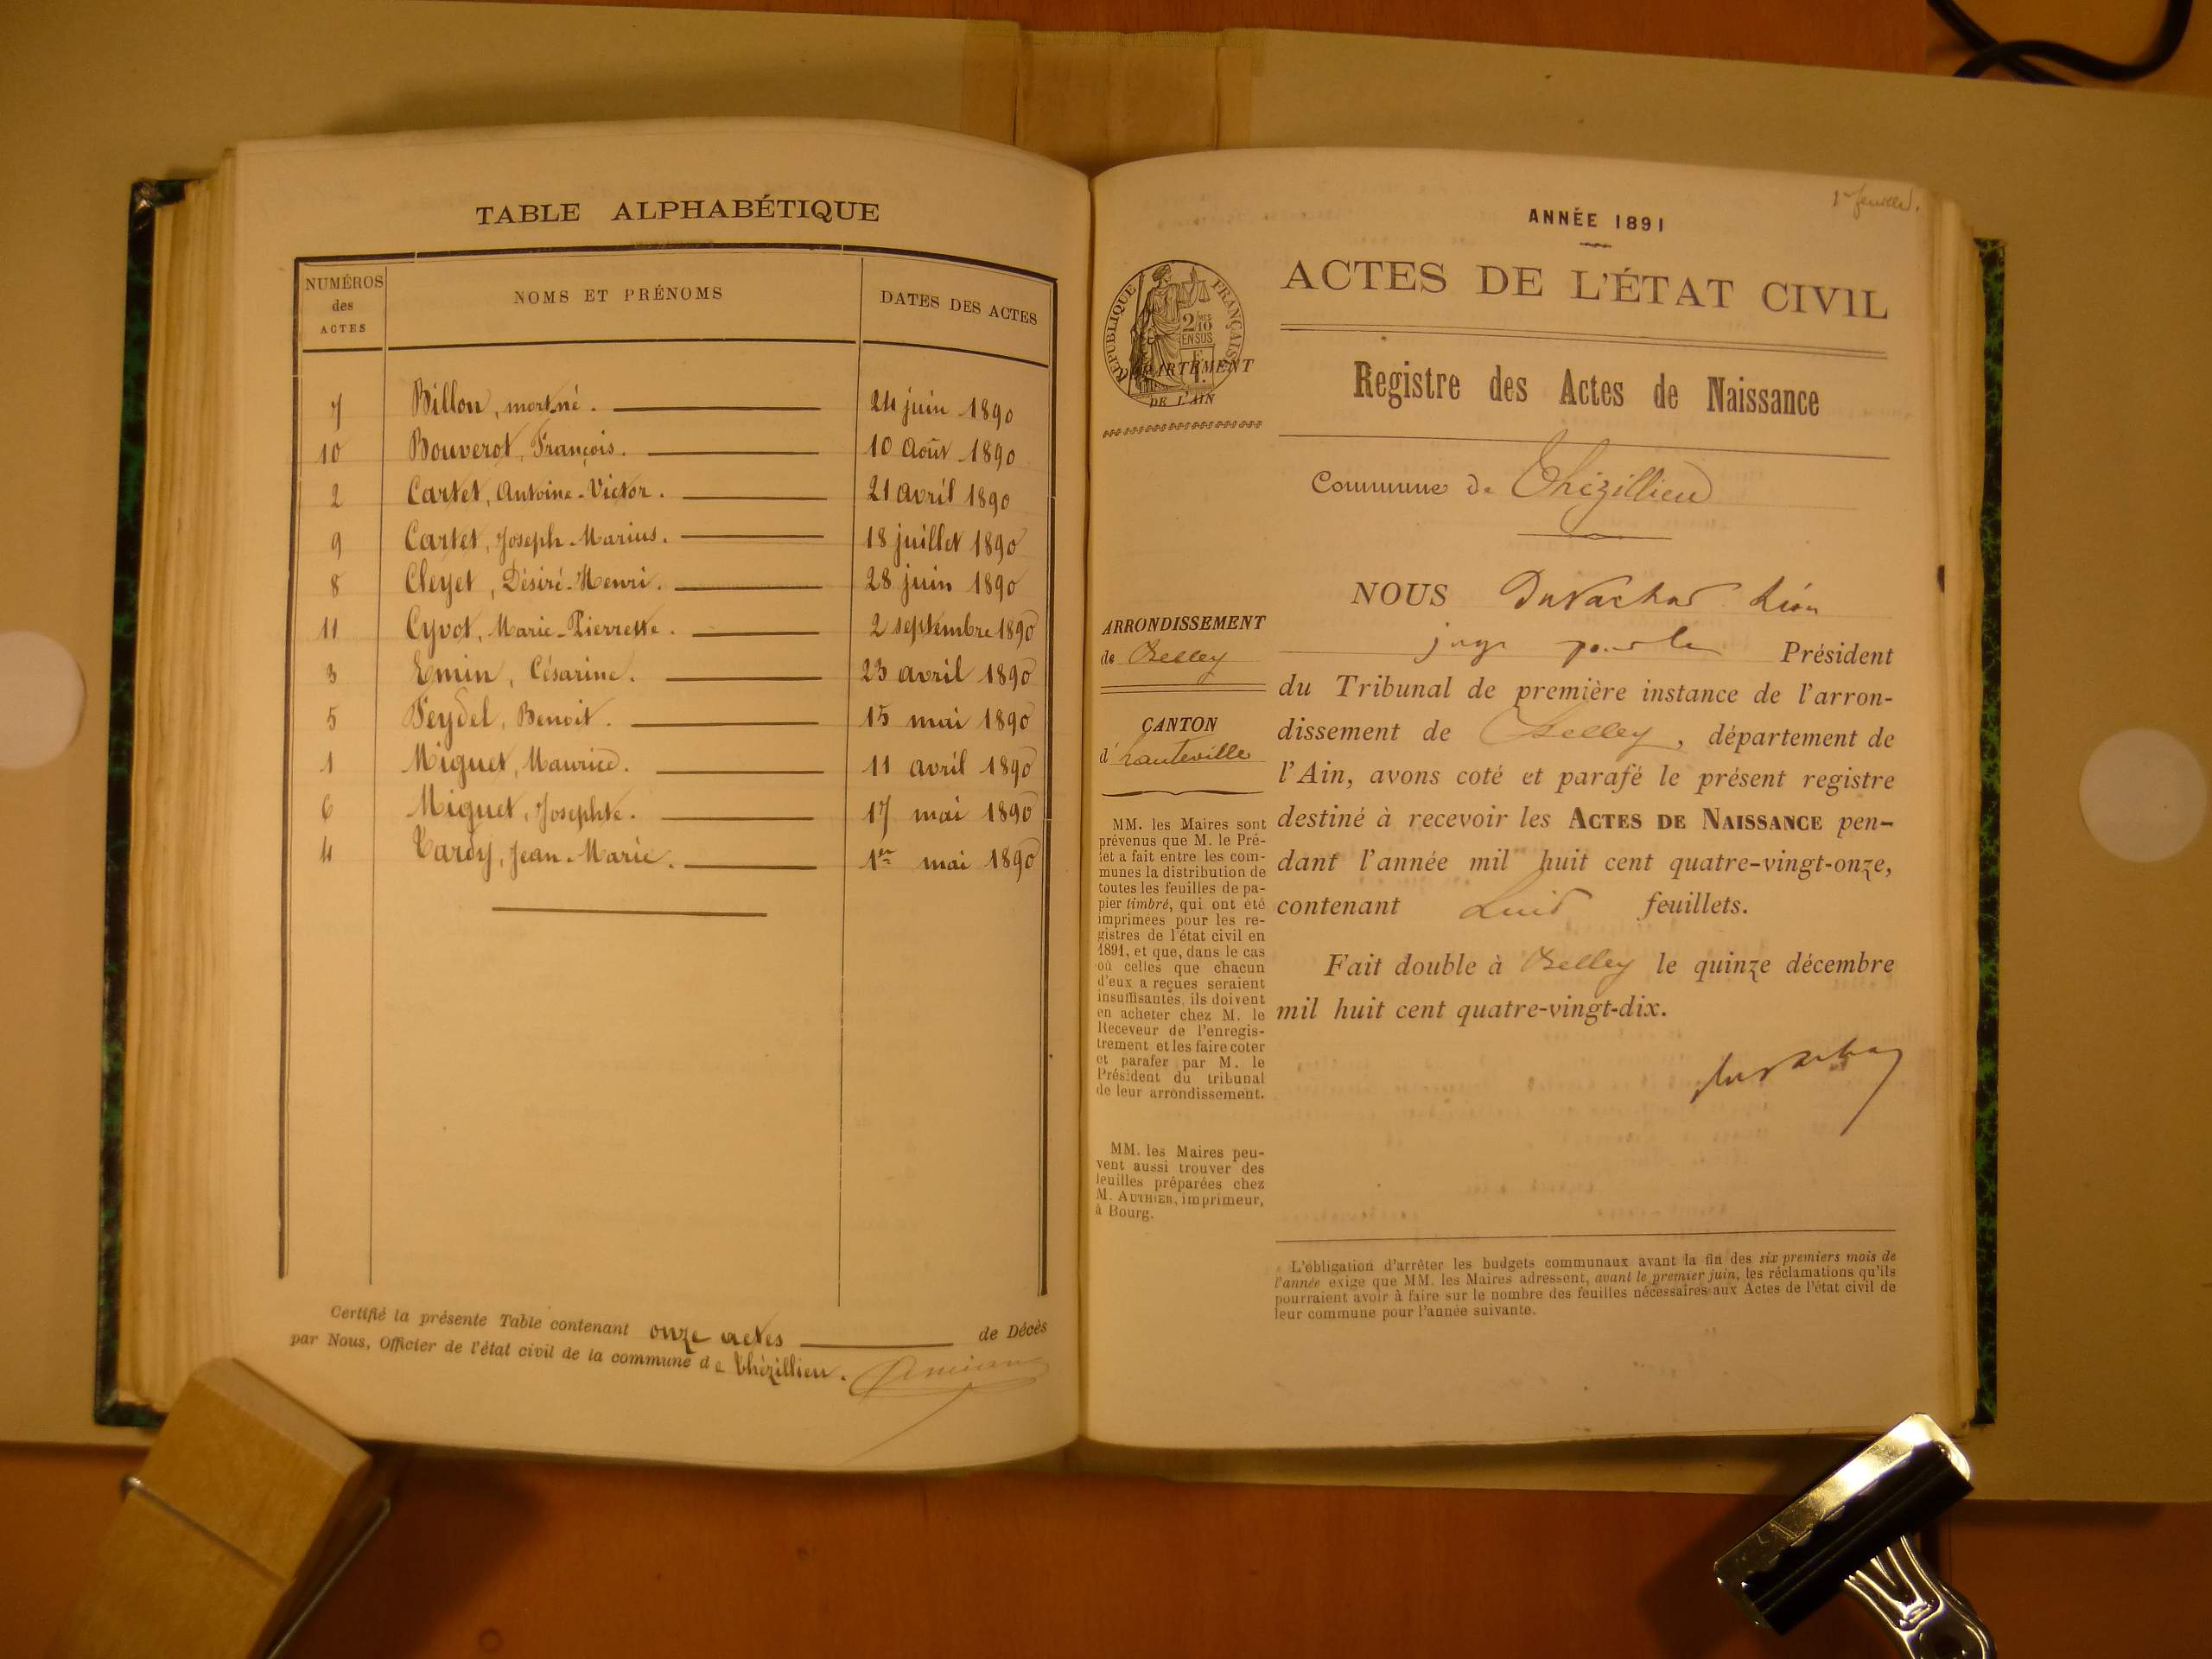 TABLE ALPHABÉTIQUE
NUMÉROS des ACTES
NOMS ET PRÉNOMS
DATES DES ACTES
7 Billon, mort-né. 24 juin 1890
10 Bouverot, François. 10 Août 1890
2 Cartet, Antoine-Victor. 21 avril 1890
9 Cartet, Joseph-Marius. 18 juillet 1890
8 Cleyet, Désiré-Henri. 28 juin 1890
11 Cyvot, Marie-Pierrette. 2 septembre 1890
3 Emin, Césarine. 23 avril 1890
5 Feydel, Benoit. 15 mai 1890
1 Miguet, Maurice. 11 avril 1890
6 Miguet, Josephte. 17 mai 1890
4 Tardy, Jean-Marie. 1er mai 1890
Certifié la présente Table contenant onze actes de Décès
par Nous, Officier de l'état civil de la commune de Thézillieu.
1er feuillet.
ANNÉE 1891
ACTES DE L'ÉTAT CIVIL
RÉPUBLIQUE FRANÇAISE
2/10
EN SUS
DÉPARTEMENT
DE L'AIN
Registre des Actes de Naissance
Commune de Thézillieu
ARRONDISSEMENT
de Belley
CANTON
d'hauteville
MM. les Maires sont
prévenus que M. le Pré-
fet a fait entre les com-
munes la distribution de
toutes les feuilles de pa-
pier timbré, qui ont été
imprimées pour les re-
gistres de l'état civil en
1891, et que, dans le cas
où celles que chacun
d'eux a reçues seraient
insuffisantes, ils doivent
en acheter chez M. le
Receveur de l'enregis-
trement et les faire coter
et parafer par M. le
Président du tribunal
de leur arrondissement.
MM. les Maires peu-
vent aussi trouver des
feuilles préparées chez
M. AUTHIER, imprimeur,
à Bourg.
NOUS Duvachat Léon
juge pour le Président
du Tribunal de première instance de l'arron-
dissement de Belley, département de
l'Ain, avons coté et parafé le présent registre
destiné à recevoir les ACTES DE NAISSANCE pen-
dant l'année mil huit cent quatre-vingt-onze,
contenant huit feuillets.
Fait double à Belley le quinze décembre
mil huit cent quatre-vingt-dix.
L'obligation d'arrêter les budgets communaux avant la fin des six premiers mois de
l'année exige que MM. les Maires adressent, avant le premier juin, les réclamations qu'ils
pourraient avoir à faire sur le nombre des feuilles nécessaires aux Actes de l'état civil de
leur commune pour l'année suivante.